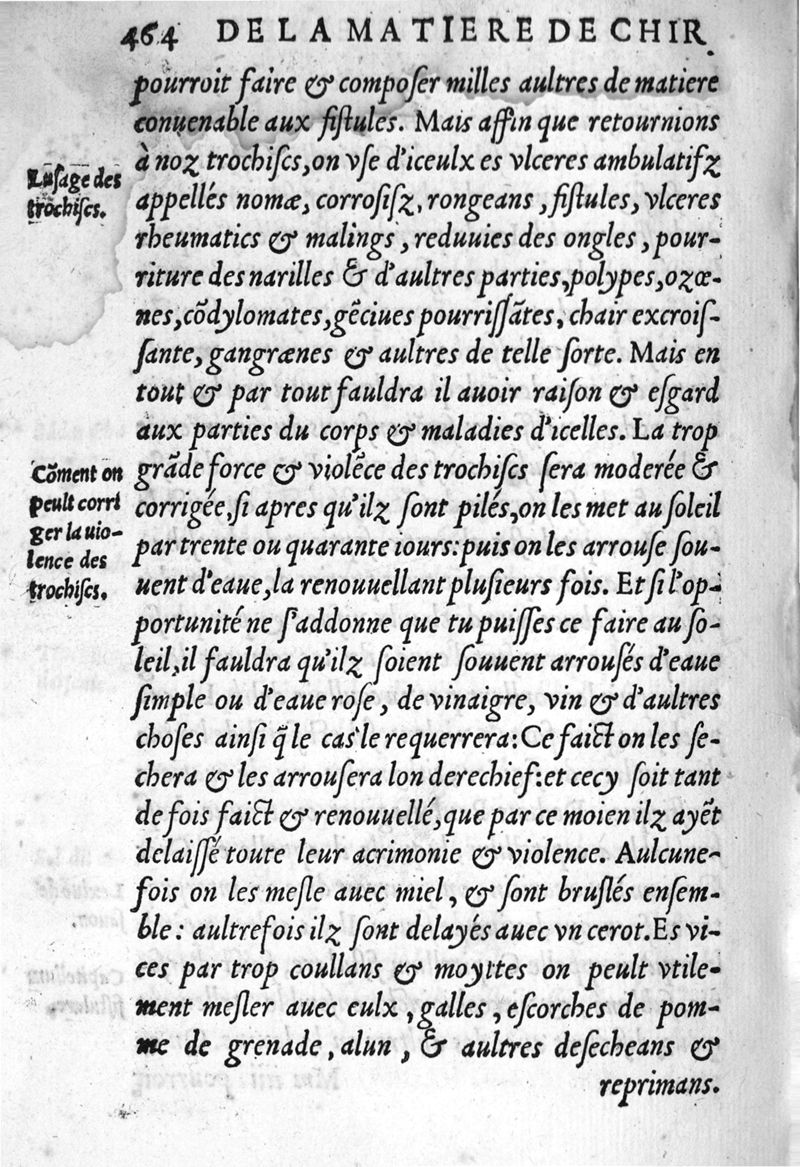 464 DE LA MATIERE DE CHIR.
pourroit faire & composer milles aultres de matiere
conuenable aux fistules. Mais affin que retournions
Lusage des
trochiscs.
à noz trochiscs, on vse d'iceulx es vlceres ambulatifz
appellés nomæ, corrosifz, rongeans, fistules, vlceres
rheumatics & malings, reduuies des ongles, pour-
riture des narilles & d'aultres parties, polypes, ozœ-
nes, cõdylomates, gẽciues pourrissãtes, chair excrois-
sante, gangrænes & aultres de telle sorte. Mais en
tout & par tout fauldra il auoir raison & esgard
aux parties du corps & maladies d'icelles. La trop
Cõment on
peult corri
ger la uio-
lence des
trochiscs.
grãde force & violẽce des trochiscs sera moderée &
corrigée, si apres qu'ilz sont pilés, on les met au soleil
par trente ou quarante iours: puis on les arrouse sou-
uent d'eaue, la renouuellant plusieurs fois. Et si l'op-
portunité ne s'addonne que tu puisses ce faire au so-
leil, il fauldra qu'ilz soient souuent arrousés d'eaue
simple ou d'eaue rose, de vinaigre, vin & d'aultres
choses ainsi q̃ le cas le requerrera: Ce faict on les se-
chera & les arrousera lon derechief: et cecy soit tant
de fois faict & renouuellé, que par ce moien ilz ayẽt
delaissé toute leur acrimonie & violence. Aulcune-
fois on les mesle auec miel, & sont bruslés ensem-
ble: aultrefois ilz sont delayés auec vn cerot. Es vi-
ces par trop coullans & moyttes on peult vtile-
ment mesler auec eulx, galles, escorches de pom-
me de grenade, alun, & aultres desecheans &
reprimans.